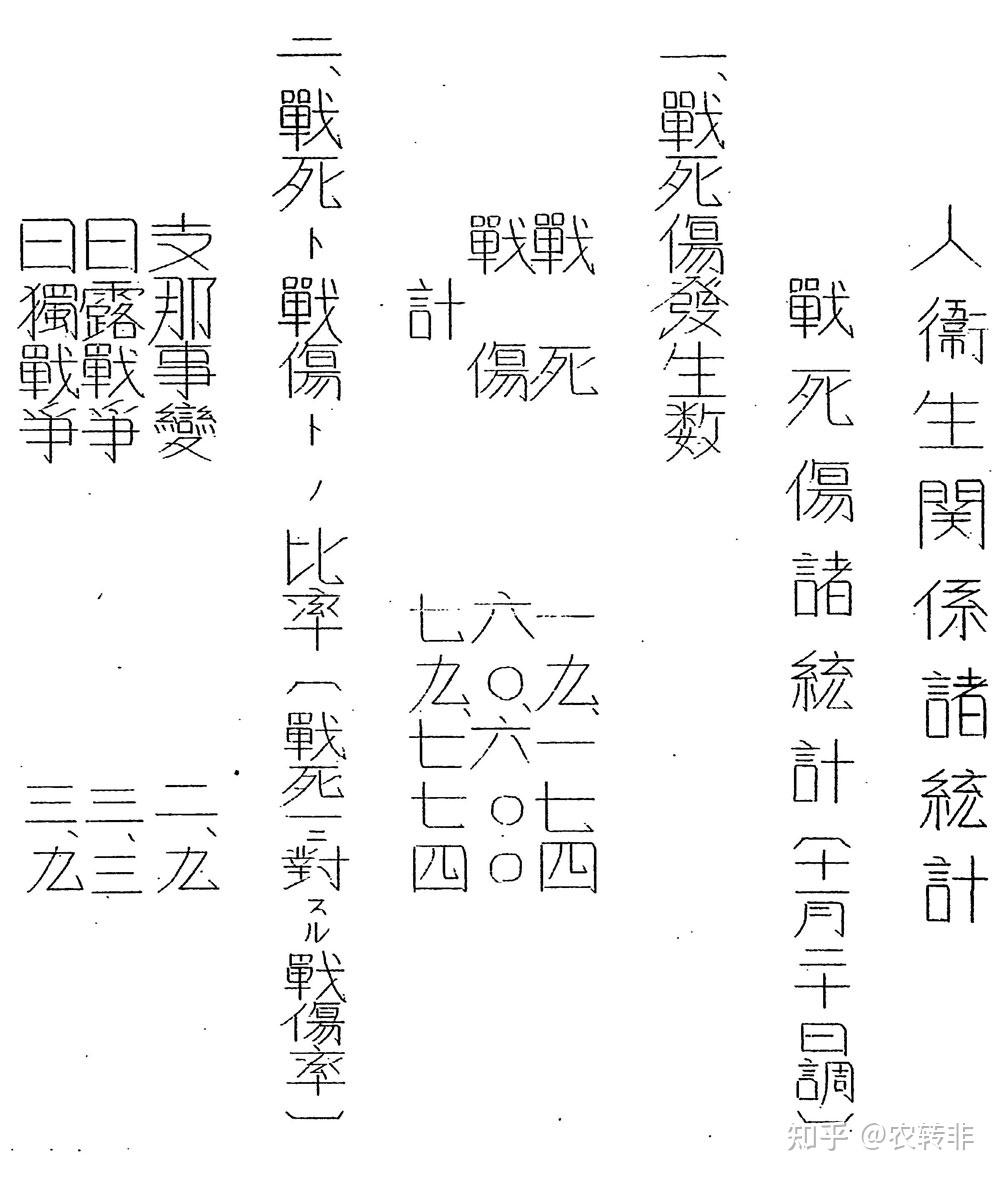 人衞生関係諸統計
戰死傷諸統計〔十一月二十日調〕
一、戰死傷發生数
戰死 一九、一七四
戰傷 六〇、六〇〇
計 七九、七七四
二、戰死ト戰傷トノ比率〔戰死一ニ對スル戰傷率〕
支那事變 二、九
日露戰爭 三、三
日獨戰爭 三、九
知乎 @农转非